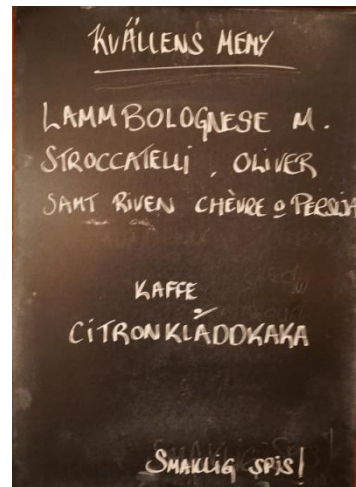 KVÄLLENS MENY
LAMMBOLOGNESE M.
STROCCATELLI, OLIVER
SAMT RIVEN CHÈVRE O PERSILJA
KAFFE
CITRONKLADDKAKA
SMAKLIG SPIS!